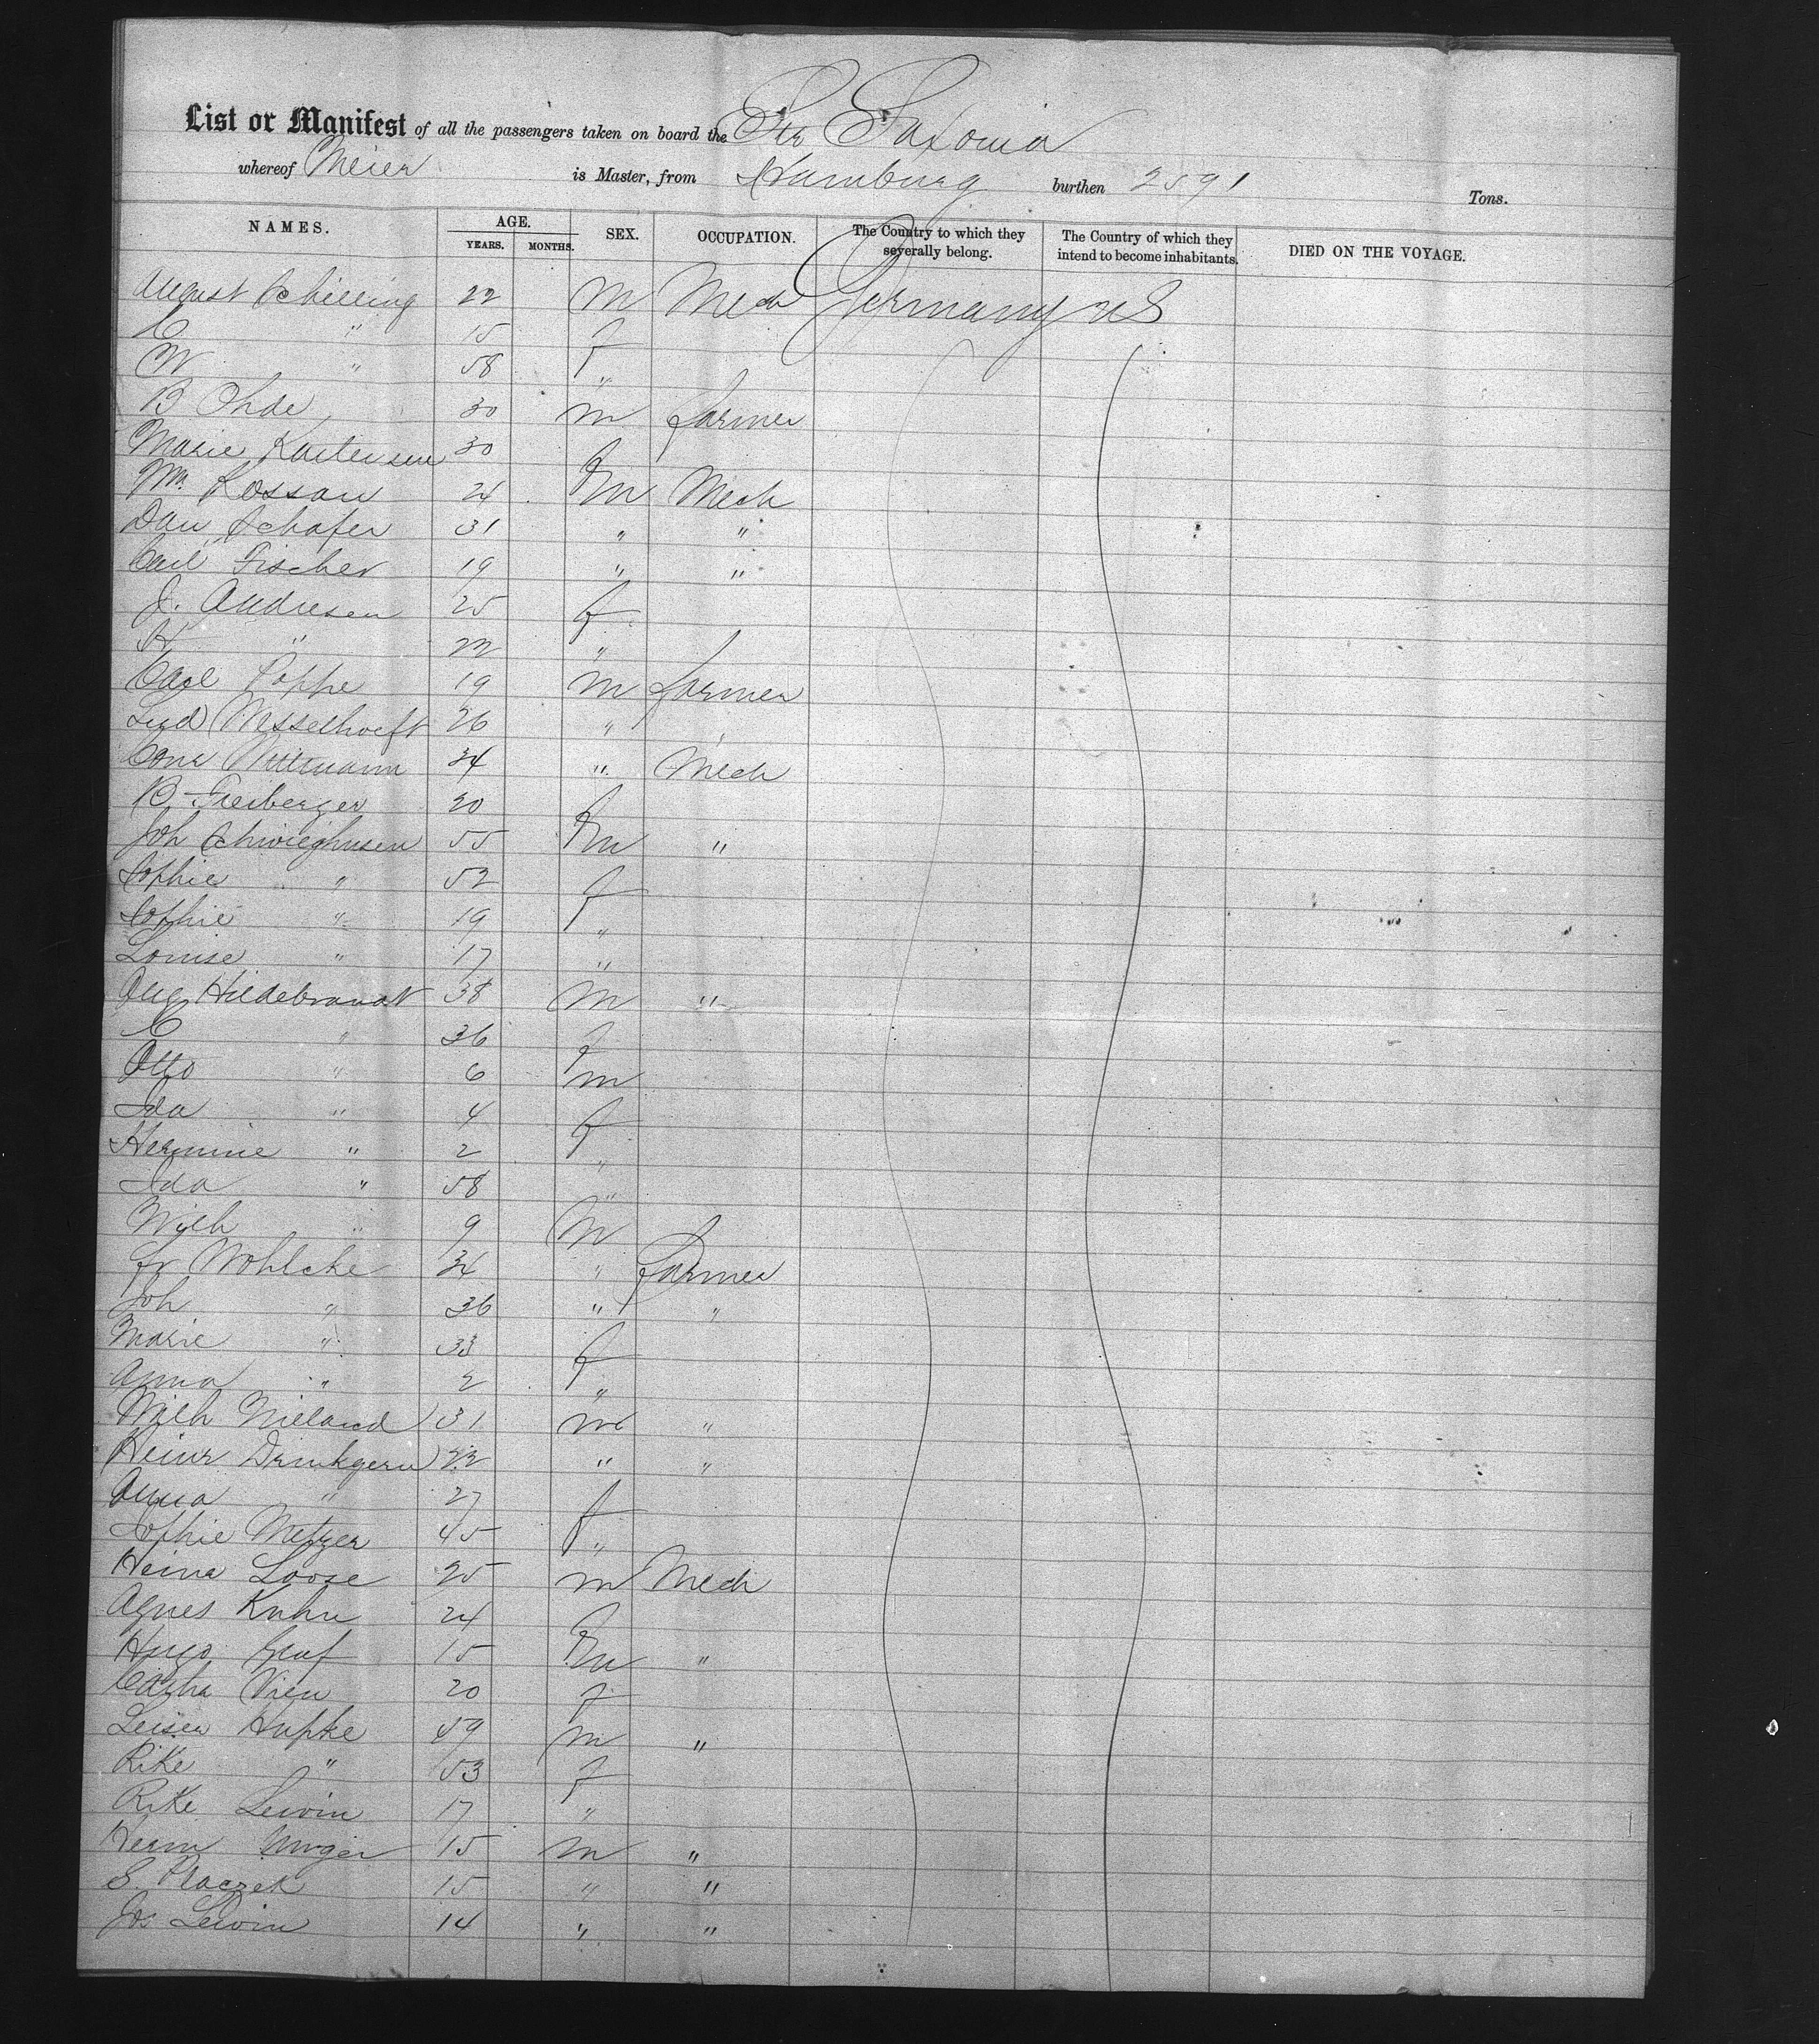 List or Manifest of all the passengers taken on board the Str Saxonia
whereof Meier is Master, from Hamburg burthen 2591 Tons.
NAMES. AGE. YEARS. MONTHS. SEX. OCCUPATION. The Country to which they severally belong. The Country of which they intend to become inhabitants. DIED ON THE VOYAGE.
August Schilling 22 m Mech Germany US
E " 15 f
W " 58 "
B Ohde 30 m farmer
Marie 30 f
Wm Kossau 24 m Mech
Dan Schafer 31 " "
Carl Fischer 19 " "
J. Andresen 25 f
H " 22 "
Carl Poppe 19 m farmer
Lud Wesselhoeft 26 " "
34 " Mech
B Freiberger 20 f
Joh Schwieghusen 55 m "
Sophie " 52 f
Sophie " 19 "
Louise " 17 "
Aug Hildebrandt 38 m "
E " 36 f
Otto " 6 m
Ida " 4 f
Hermine " 2 "
Ida " 58 "
Wilh " 9 m
Fr Wohlcke 34 " farmer
Joh " 36 " "
Marie " 33 f
Anna " 2 "
Wilh Nieland 31 m "
Heinr Drinkgern "  "
Anna " 27 f
Sophie Metzer 45 "
Heinr Loose 25 m Mech
Agnes Kuhn 24 f
Hugo Graf 15 m "
Cath Vieu 20 f
Leiser Hupke 49 m "
Rike " 53 f
Rike Lewin 17 "
Herm Unger 15 m "
S. Raczek 15 " "
Jos Lewin 14 " "